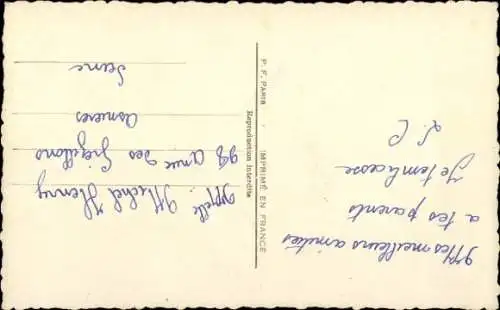 Mes meilleurs amitiés
a tes parents
Je t'embrasse
L. C
P. F. PARIS
IMPRIMÉ EN FRANCE
Reproduction Interdite
Melle Michel Henry
98 Avenue des Grésillons
Asnieres
Seine